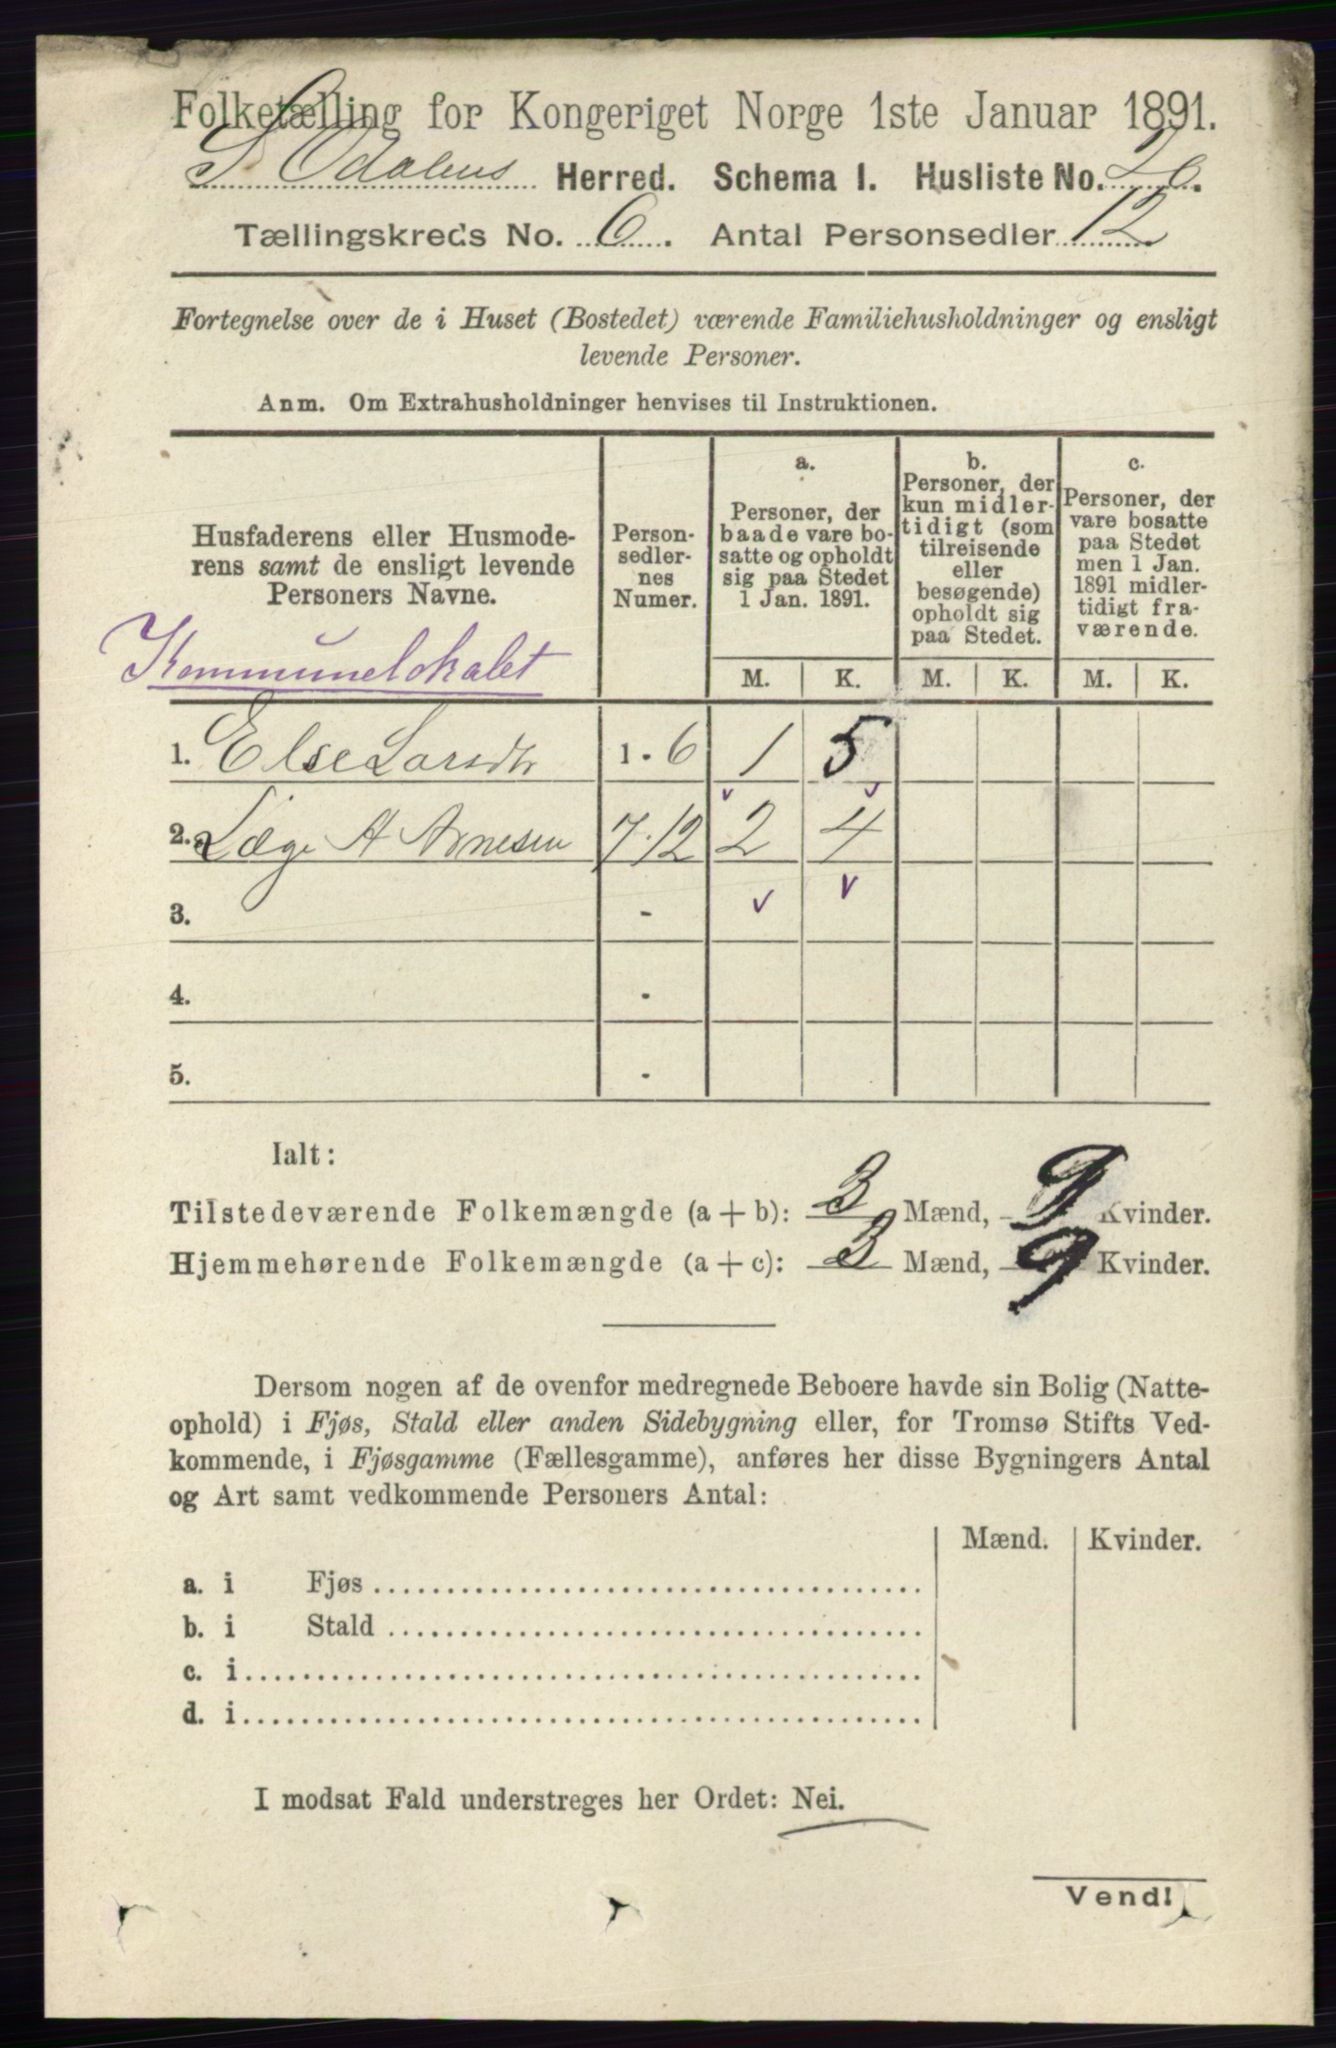 Folketælling for Kongeriget Norge 1ste Januar 1891.
S. Odalens Herred. Schema I. Husliste No. 26.
Tællingskreds No. 6. Antal Personsedler 12
Fortegnelse over de i Huset (Bostedet) værende Familiehusholdninger og ensligt
levende Personer.
Anm. Om Extrahusholdninger henvises til Instruktionen.
Husfaderens eller Husmode-
rens samt de ensligt levende
Personers Navne.
Kommunelokalet
Person-
sedler-
nes
Numer.
a.
Personer, der
baade vare bo-
satte og opholdt
sig paa Stedet
1 Jan. 1891.
b.
Personer, der
kun midler-
tidigt (som
tilreisende
eller
besøgende)
opholdt sig
paa Stedet.
c.
Personer, der
vare bosatte
paa Stedet
men 1 Jan.
1891 midler-
tidigt fra-
værende.
M. K. M. K. M. K.
1. Else Larsdtr 1 - 6 1 5
2. Læge A Arnesen 7-12 2 4
3. -
4. -
5. -
Ialt:
Tilstedeværende Folkemængde (a + b): 3 Mænd, 9 Kvinder.
Hjemmehørende Folkemængde (a + c): 3 Mænd, 9 Kvinder.
Dersom nogen af de ovenfor medregnede Beboere havde sin Bolig (Natte-
ophold) i Fjøs, Stald eller anden Sidebygning eller, for Tromsø Stifts Ved-
kommende, i Fjøsgamme (Fællesgamme), anføres her disse Bygningers Antal
og Art samt vedkommende Personers Antal:
Mænd. Kvinder.
a. i Fjøs
b. i Stald
c. i
d. i
I modsat Fald understreges her Ordet: Nei.
Vend!